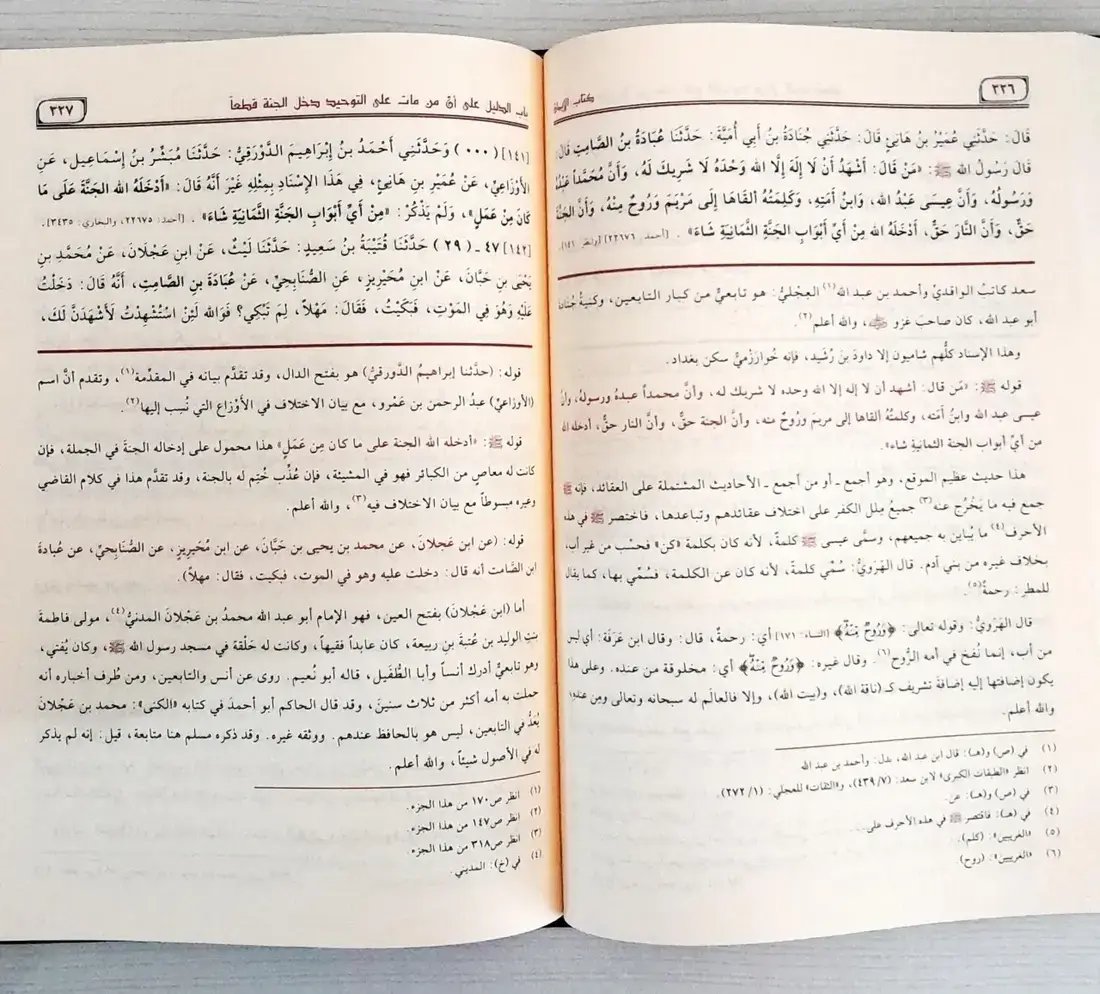 ٢٢٦
كتاب الإيمان
قَالَ: حَدَّثَنِي عُمَيْرُ بنُ هَانِئٍ قَالَ: حَدَّثَنِي جُنَادَةُ بنُ أَبِي أُمَيَّةَ: حَدَّثَنَا عُبَادَةُ بنُ الصَّامِتِ قَالَ:
قَالَ رَسُولُ اللهِ ﷺ: «مَنْ قَالَ: أَشْهَدُ أَنْ لَا إِلَهَ إِلَّا اللهُ وَحْدَهُ لَا شَرِيكَ لَهُ، وَأَنَّ مُحَمَّداً عَبْدُهُ
وَرَسُولُهُ، وَأَنَّ عِيسَى عَبْدُ اللهِ، وَابنُ أَمَتِهِ، وَكَلِمَتُهُ أَلْقَاهَا إِلَى مَرْيَمَ وَرُوحٌ مِنْهُ، وَأَنَّ الجَنَّةَ
حَقٌّ، وَأَنَّ النَّارَ حَقٌّ، أَدْخَلَهُ اللهُ مِنْ أَيِّ أَبْوَابِ الجَنَّةِ الثَّمَانِيَةِ شَاءَ». [أحمد: ٢٢٦٧٦] [وانظر: ١٤١].
سعد كاتبُ الواقديِّ وأحمد بن عبد الله(١) العِجْليُّ: هو تابعيٌّ من كبار التابعين، وكنيةُ جُنادة
أبو عبد الله، كان صاحبَ غزوٍ ﷺ، والله أعلم(٢).
وهذا الإسناد كلُّهم شاميون إلا داودَ بنَ رُشَيد، فإنه خُوارَزْميٌّ سكن بغداد.
قوله ﷺ: «مَن قال: أشهد أن لا إله إلا الله وحده لا شريك له، وأنَّ محمداً عبدهُ ورسولهُ، وأنَّ
عيسى عبد الله وابنُ أَمَته، وكلمتُهُ ألقاها إلى مريمَ ورُوحٌ منه، وأنَّ الجنة حقٌّ، وأنَّ النار حقٌّ، أدخله الله
من أيِّ أبواب الجنة الثمانيةِ شاء».
هذا حديث عظيم الموقع، وهو أجمع ـ أو من أجمع ـ الأحاديث المشتملة على العقائد، فإنه ﷺ
جمع فيه ما يَخْرُج عنه(٣) جميعُ مِلل الكفر على اختلاف عقائدهم وتباعدها، فاختصر ﷺ في هذه
الأحرف(٤) ما يُباين به جميعهم، وسمَّى عيسى ﷺ كلمةً، لأنه كان بكلمة «كن» فحسْب من غير أب،
بخلاف غيره من بني آدم. قال الهَرَويُّ: سُمِّي كلمةً، لأنه كان عن الكلمة، فسُمِّي بها، كما يقال
للمطر: رحمةٌ(٥).
قال الهَرَويُّ: وقوله تعالى: ﴿وَرُوحٌ مِّنْهُ﴾ [النساء: ١٧١] أي: رحمةٌ، قال: وقال ابن عَرَفة: أي ليس
من أب، إنما نُفخ في أمه الرُّوح(٦). وقال غيره: ﴿وَرُوحٌ مِّنْهُ﴾ أي: مخلوقة من عنده. وعلى هذا
يكون إضافتها إليه إضافةَ تشريف كـ(ناقة الله)، و(بيت الله)، وإلا فالعالَم له سبحانه وتعالى ومِن عنده،
والله أعلم.
(١) في (ص) و(هـ): قال ابن عبد الله، بدل: وأحمد بن عبد الله
(٢) انظر «الطبقات الكبرى» لابن سعد: (٤٣٩/٧)، و«الثقات» للعجلي: (٢٧٢/١).
(٣) في (ص) و(هـ): عن.
(٤) في (هـ): فاقتصر ﷺ في هذه الأحرف على...
(٥) «الغريبين»: (كلم).
(٦) «الغريبين»: (روح)
باب الدليل على أنَّ من مات على التوحيد دخل الجنة قطعاً
٢٢٧
[١٤١] (٠٠٠) وَحَدَّثَنِي أَحْمَدُ بنُ إِبْرَاهِيمَ الدَّوْرَقِيُّ: حَدَّثَنَا مُبَشِّرُ بنُ إِسْمَاعِيلَ، عَنِ
الأَوْزَاعِيِّ، عَنْ عُمَيْرِ بنِ هَانِئٍ، فِي هَذَا الإِسْنَادِ بِمِثْلِهِ غَيْرَ أَنَّهُ قَالَ: «أَدْخَلَهُ اللهُ الجَنَّةَ عَلَى مَا
كَانَ مِنْ عَمَلٍ»، وَلَمْ يَذْكُرْ: «مِنْ أَيِّ أَبْوَابِ الجَنَّةِ الثَّمَانِيَةِ شَاءَ». [أحمد: ٢٢٦٧٥، والبخاري: ٣٤٣٥].
[١٤٢] ٤٧ ـ (٢٩) حَدَّثَنَا قُتَيْبَةُ بنُ سَعِيدٍ: حَدَّثَنَا لَيْثٌ، عَنْ ابنِ عَجْلَانَ، عَنْ مُحَمَّدِ بنِ
يَحْيَى بنِ حَبَّانَ، عَنْ ابنِ مُحَيْرِيزٍ، عَنِ الصُّنَابِحِيِّ، عَنْ عُبَادَةَ بنِ الصَّامِتِ، أَنَّهُ قَالَ: دَخَلْتُ
عَلَيْهِ وَهُوَ فِي المَوْتِ، فَبَكَيْتُ، فَقَالَ: مَهْلاً، لِمَ تَبْكِي؟ فَوَاللهِ لَئِنْ اسْتُشْهِدْتُ لَأَشْهَدَنَّ لَكَ،
قوله: (حدَّثنا إبراهيمُ الدَّورقيُّ) هو بفتح الدال، وقد تقدَّم بيانه في المقدِّمة(١)، وتقدم أنَّ اسم
(الأوزاعيِّ) عبدُ الرحمن بن عَمْرو، مع بيان الاختلاف في الأَوْزاع التي نُسِب إليها(٢).
قوله ﷺ: «أدخله الله الجنة على ما كان مِن عَمَلٍ» هذا محمول على إدخاله الجنةَ في الجملة، فإن
كانت له معاصٍ من الكبائر فهو في المشيئة، فإن عُذِّب خُتِم له بالجنة، وقد تقدَّم هذا في كلام القاضي
وغيره مبسوطاً مع بيان الاختلاف فيه(٣)، والله أعلم.
قوله: (عن ابن عَجلانَ، عن محمد بن يحيى بن حَبَّان، عن ابن مُحَيريزٍ، عن الصُّنابِحيِّ، عن عُبادةَ
ابن الصَّامت أنه قال: دخلت عليه وهو في الموت، فبكيت، فقال: مهلاً).
أما (ابن عَجْلان) بفتح العين، فهو الإمام أبو عبد الله محمدُ بن عَجْلانَ المدنيُّ(٤)، مولى فاطمةَ
بنتِ الوليد بن عُتبةَ بن ربيعة، كان عابداً فقيهاً، وكانت له حَلْقة في مسجد رسول الله ﷺ، وكان يُفتي،
وهو تابعيٌّ أدرك أنساً وأبا الطُّفَيل، قاله أبو نُعيم. روى عن أنس والتابعين، ومن طُرف أخباره أنه
حملت به أمه أكثر من ثلاث سنين، وقد قال الحاكم أبو أحمدَ في كتابه «الكنى»: محمد بن عَجْلانَ
يُعَدُّ في التابعين، ليس هو بالحافظ عندهم. ووثقه غيره. وقد ذكره مسلم هنا متابعة، قيل: إنه لم يذكر
له في الأصول شيئاً، والله أعلم.
(١) انظر ص١٧٠ من هذا الجزء.
(٢) انظر ص١٤٧ من هذا الجزء.
(٣) انظر ص٣١٨ من هذا الجزء.
(٤) في (خ): المديني.